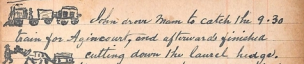 John drove Mam to catch the 9.30
train for Agincourt, and afterwards finished
cutting down the laurel hedge.